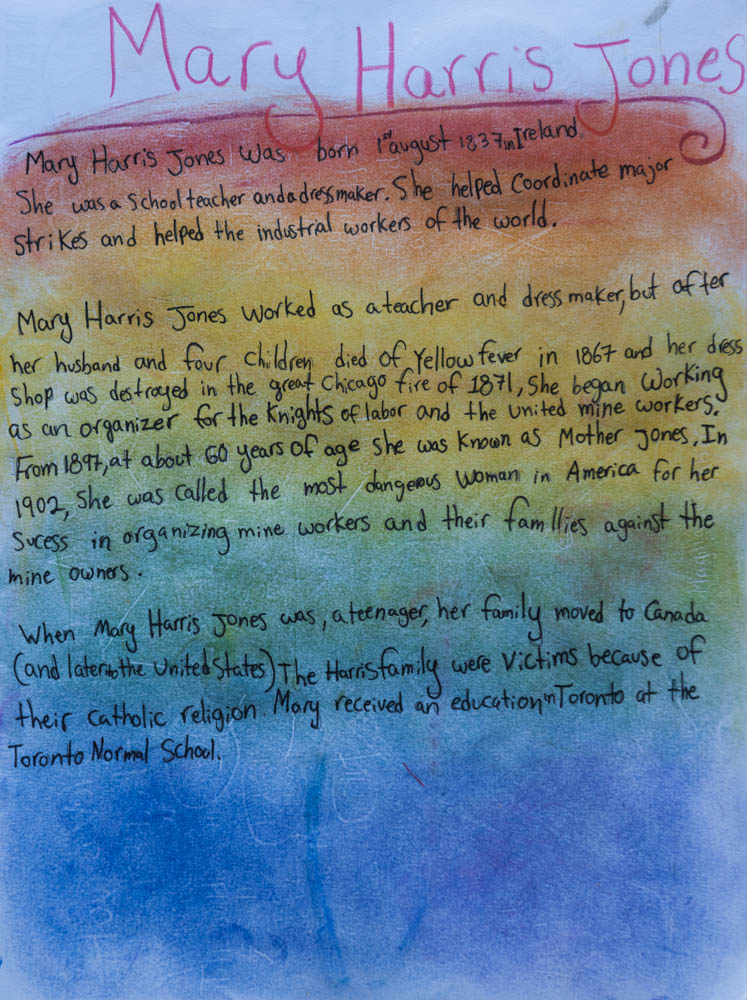 Mary Harris Jones
Mary Harris Jones was born 1st august 1837 in Ireland.
She was a school teacher and a dress maker. She helped Coordinate major
strikes and helped the industrial workers of the world.
Mary Harris Jones worked as a teacher and dress maker, but after
her husband and four children died of Yellow fever in 1867 and her dress
shop was destroyed in the great Chicago fire of 1871, She began Working
as an organizer for the Knights of labor and the united mine workers.
From 1897, at about 60 years of age she was known as Mother Jones. In
1902, She was called the most dangerous woman in America for her
sucess in organizing mine workers and their famllies against the
mine owners.
When Mary Harris Jones was, a teenager, her family moved to Canada
(and later to the United States) The Harris family were victims because of
their catholic religion. Mary received an education in Toronto at the
Toronto Normal School.